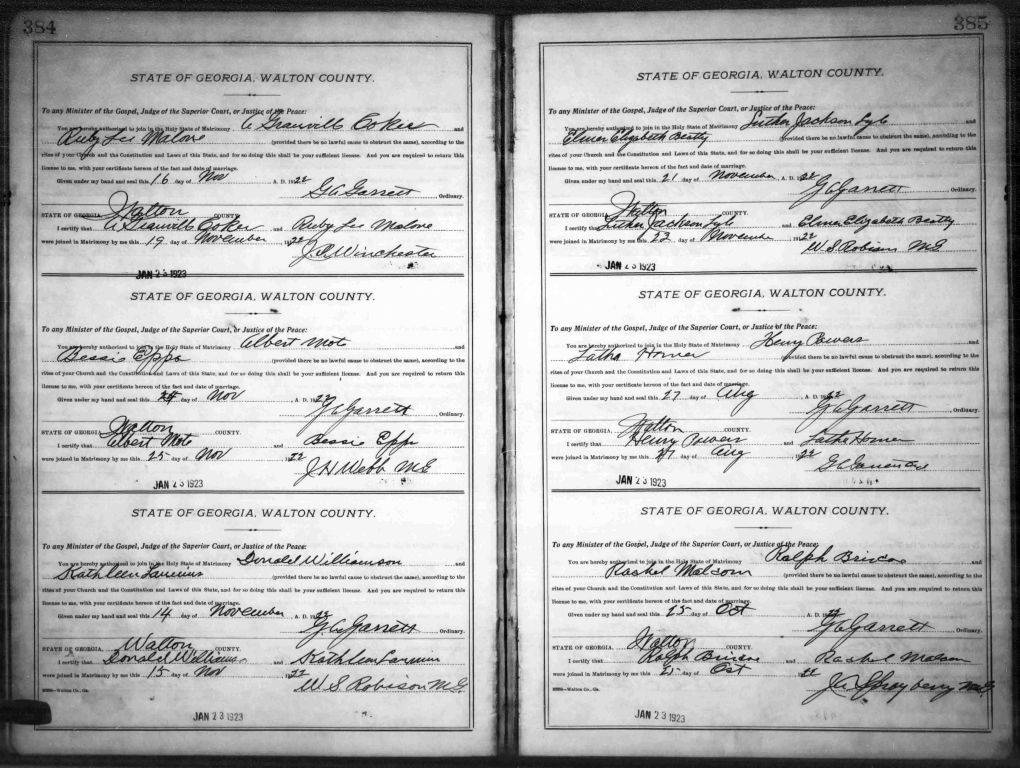 384
STATE OF GEORGIA, WALTON COUNTY.
To any Minister of the Gospel, Judge of the Superior Court, or Justice of the Peace:
You are hereby authorized to join in the Holy State of Matrimony Granvill Coker and
Ruby Lee Malone (provided there be no lawful cause to obstruct the same), according to the
rites of your Church and the Constitution and Laws of this State, and for so doing this shall be your sufficient license. And you are required to return this
license to me, with your certificate hereon of the fact and date of marriage.
Given under my hand and seal this 16 day of Nov A. D. 1922
Garrett Ordinary.
STATE OF GEORGIA, Walton COUNTY.
I certify that Granvill Coker and Ruby Lee Malone
were joined in Matrimony by me this 19 day of November 1922
Winchester
JAN 23 1923
STATE OF GEORGIA, WALTON COUNTY.
To any Minister of the Gospel, Judge of the Superior Court, or Justice of the Peace:
You are hereby authorized to join in the Holy State of Matrimony Albert Mote and
Bessie Epps (provided there be no lawful cause to obstruct the same), according to the
rites of your Church and the Constitution and Laws of this State, and for so doing this shall be your sufficient license. And you are required to return this
license to me, with your certificate hereon of the fact and date of marriage.
Given under my hand and seal this 24 day of Nov A. D. 1922
Garrett Ordinary.
STATE OF GEORGIA, Walton COUNTY.
I certify that Albert Mote and Bessie Epps
were joined in Matrimony by me this 25 day of Nov 1922
J H Webb M G
JAN 23 1923
STATE OF GEORGIA, WALTON COUNTY.
To any Minister of the Gospel, Judge of the Superior Court, or Justice of the Peace:
You are hereby authorized to join in the Holy State of Matrimony Donald Williamson and
Kathleen (provided there be no lawful cause to obstruct the same), according to the
rites of your Church and the Constitution and Laws of this State, and for so doing this shall be your sufficient license. And you are required to return this
license to me, with your certificate hereon of the fact and date of marriage.
Given under my hand and seal this 14 day of November A. D. 1922
Garrett Ordinary.
STATE OF GEORGIA, Walton COUNTY.
I certify that Donald Williams and Kathleen
were joined in Matrimony by me this 15 day of Nov 1922
W S Robison M.G.
Walton Co., Ga.
JAN 23 1923
385
STATE OF GEORGIA, WALTON COUNTY.
To any Minister of the Gospel, Judge of the Superior Court, or Justice of the Peace:
You are hereby authorized to join in the Holy State of Matrimony Luther Jackson Lyle and
Elmer Elizabeth Beatty (provided there be no lawful cause to obstruct the same), according to the
rites of your Church and the Constitution and Laws of this State, and for so doing this shall be your sufficient license. And you are required to return this
license to me, with your certificate hereon of the fact and date of marriage.
Given under my hand and seal this 21 day of November A. D. 1922
Garrett Ordinary.
STATE OF GEORGIA, Walton COUNTY.
I certify that Luther Jackson Lyle and Elmer Elizabeth Beatty
were joined in Matrimony by me this 23 day of November 1922
W S Robison M G
JAN 23 1923
STATE OF GEORGIA, WALTON COUNTY.
To any Minister of the Gospel, Judge of the Superior Court, or Justice of the Peace:
You are hereby authorized to join in the Holy State of Matrimony Henry Powers and
Latha Horner (provided there be no lawful cause to obstruct the same), according to the
rites of your Church and the Constitution and Laws of this State, and for so doing this shall be your sufficient license. And you are required to return this
license to me, with your certificate hereon of the fact and date of marriage.
Given under my hand and seal this 27 day of Aug A. D. 1922
Garrett Ordinary.
STATE OF GEORGIA, Walton COUNTY.
I certify that Henry Powers and Latha Horner
were joined in Matrimony by me this 27 day of Aug 1922
JAN 23 1923
STATE OF GEORGIA, WALTON COUNTY.
To any Minister of the Gospel, Judge of the Superior Court, or Justice of the Peace:
You are hereby authorized to join in the Holy State of Matrimony Ralph Briscoe and
Rachel Malcom (provided there be no lawful cause to obstruct the same), according to the
rites of your Church and the Constitution and Laws of this State, and for so doing this shall be your sufficient license. And you are required to return this
license to me, with your certificate hereon of the fact and date of marriage.
Given under my hand and seal this 25 day of Oct A. D. 1922
Garrett Ordinary.
STATE OF GEORGIA, Walton COUNTY.
I certify that Ralph Briscoe and Rachel Malcom
were joined in Matrimony by me this day of Oct 1922
Walton Co., Ga.
JAN 23 1923